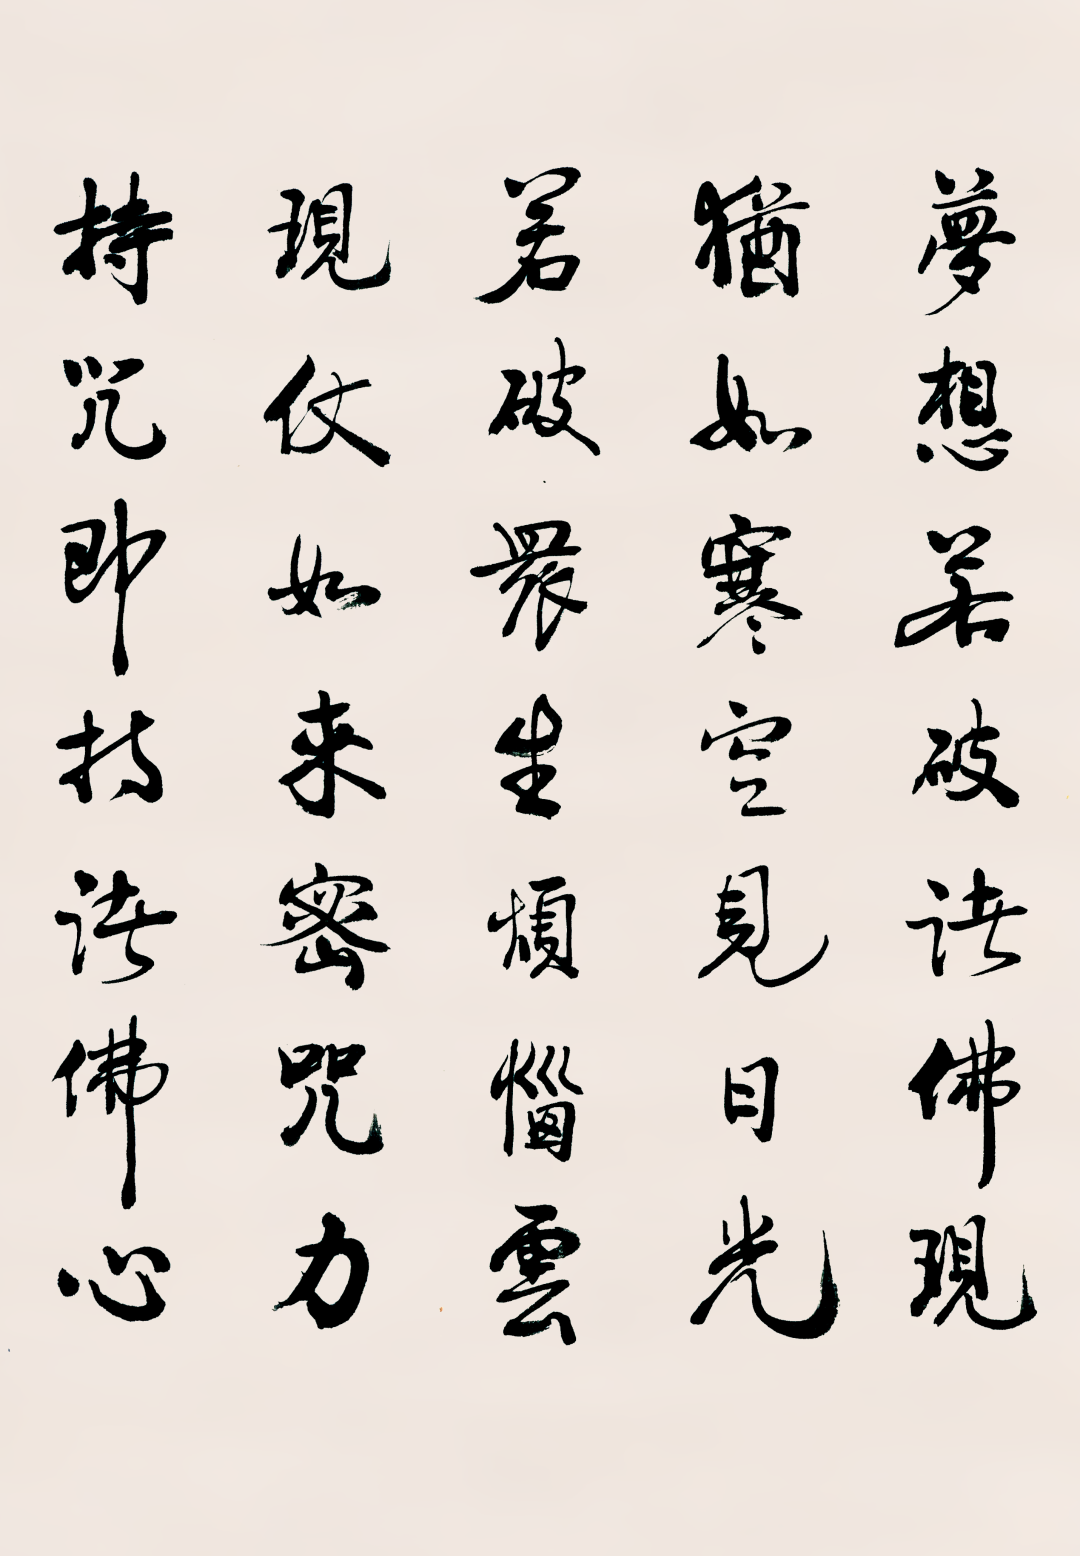 夢想若破諸佛現
猶如寒空見日光
若破眾生煩惱雲
現仗如来密咒力
持咒即持諸佛心